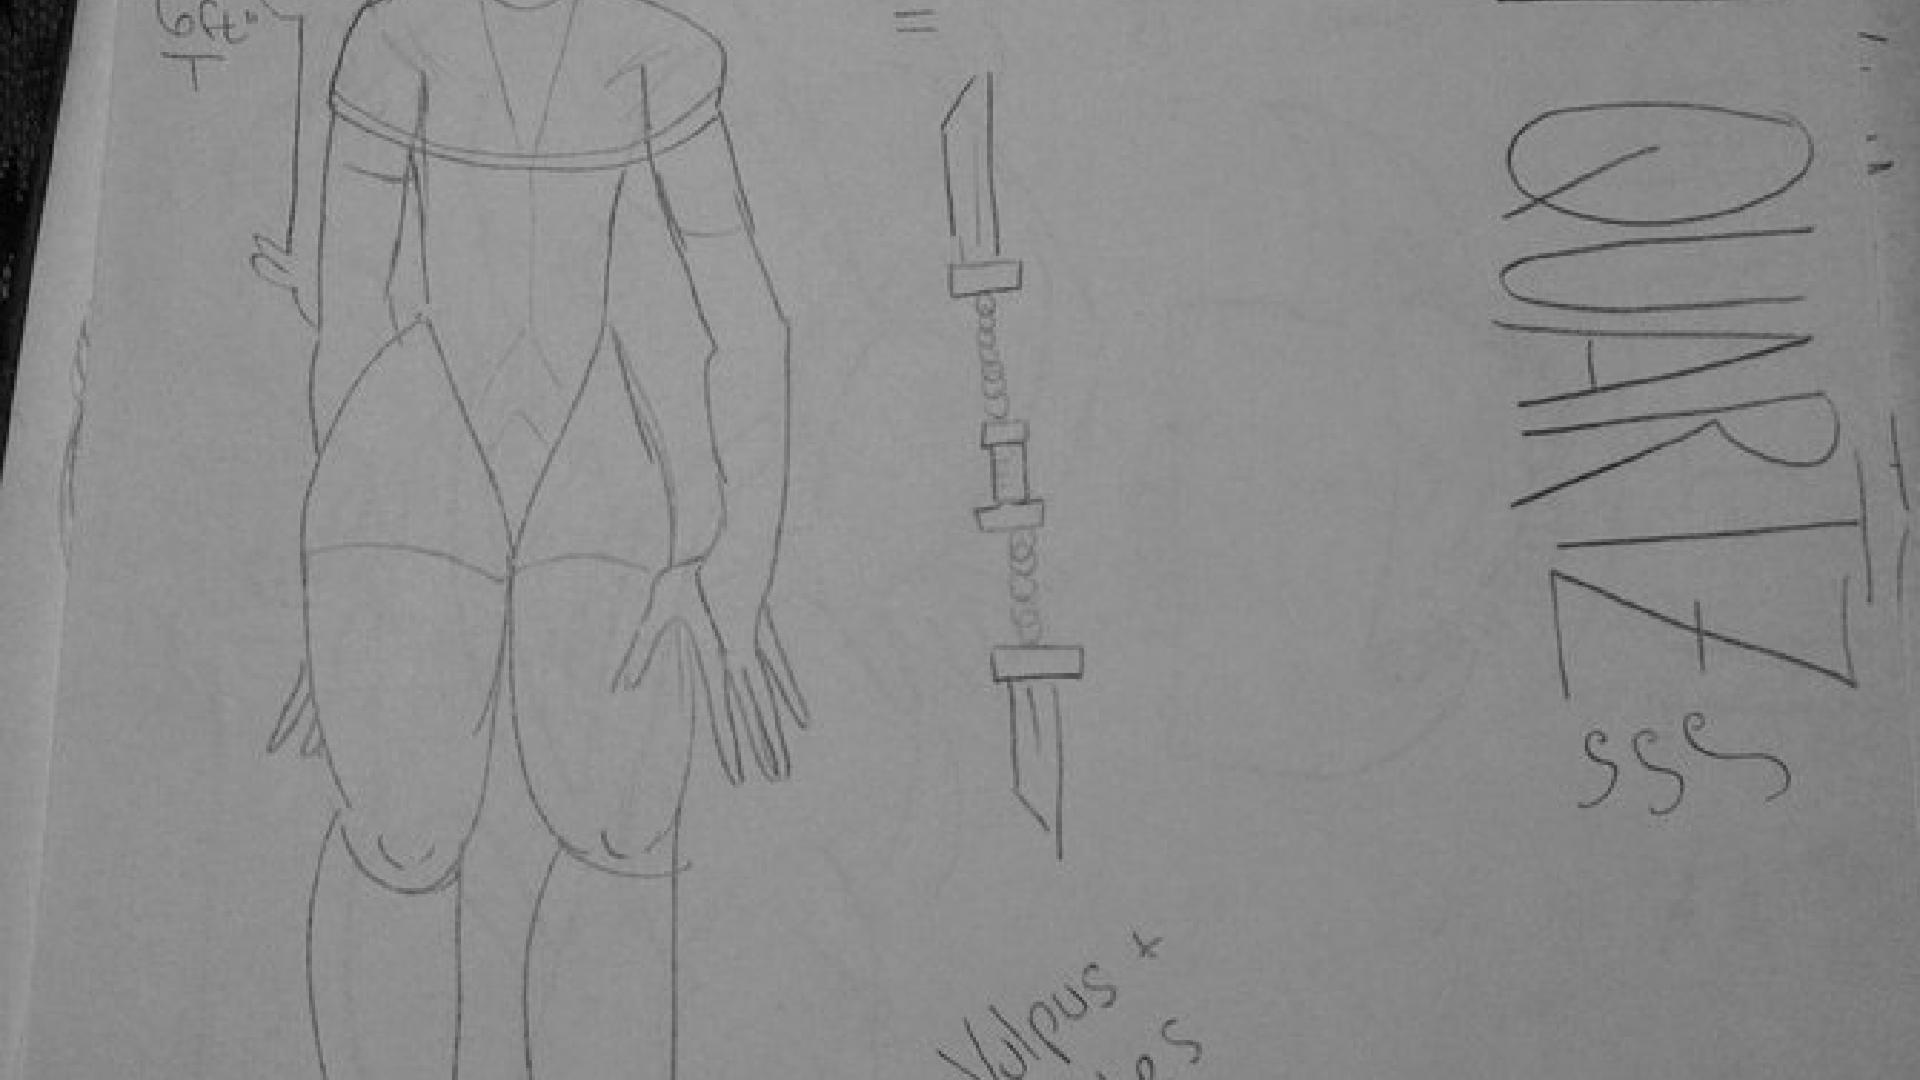 6ft"
T
=
QUARTZ
SSS
Vulpus +